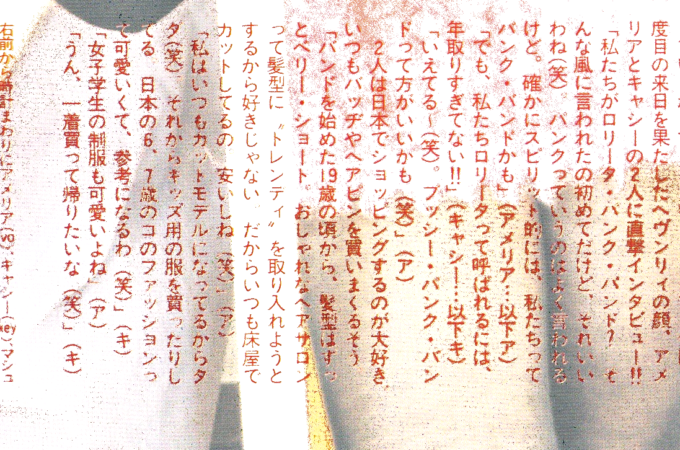 度目の来日を果たしたヘヴンリィの顔、アメ
リアとキャシーの2人に直撃インタビュー!!
「私たちがロリータ・パンク・バンド? そ
んな風に言われたの初めてだけど、それいい
わね(笑)。パンクっていうのはよく言われる
けど。確かにスピリット的には、私たちって
パンク・バンドかも」(アメリア…以下ア)
「でも、私たちロリータって呼ばれるには、
年取りすぎてない!!」(キャシー…以下キ)
「いえてる〜(笑)。プッシー・パンク・バン
ドって方がいいかも(笑)」(ア)
2人は日本でショッピングするのが大好き。
いつもバッヂやヘアピンを買いまくるそう。
「バンドを始めた19歳の頃から、髪型はずっ
とベリー・ショート。おしゃれなヘアサロン
って髪型に〝トレンティ〟を取り入れようと
するから好きじゃない。だからいつも床屋で
カットしてるの。安いしね(笑)」(ア)
「私はいつもカットモデルになってるからタ
ダ(笑)。それからキッズ用の服を買ったりし
てる。日本の6、7歳のコのファッションっ
て可愛いくて、参考になるわ(笑)」(キ)
「女子学生の制服も可愛いよね」(ア)
「うん、一着買って帰りたいな(笑)」(キ)
右前から時計まわりにアメリア(vo)、キャシー(key)、マシュ